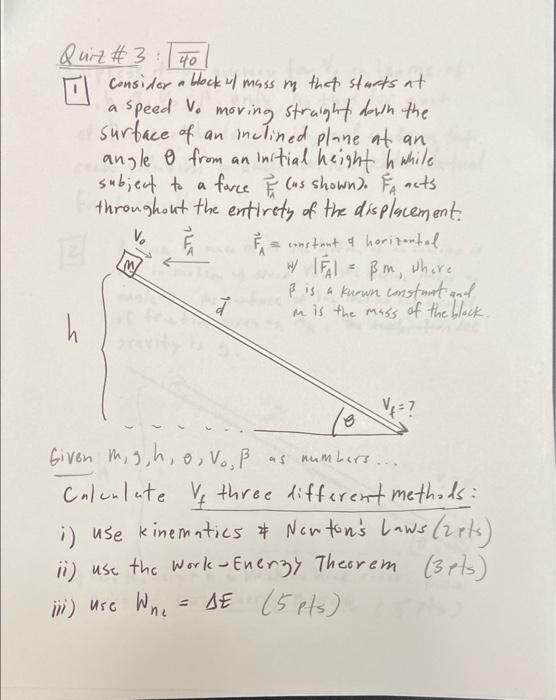 Quiz #3: /40
1 Consider a block w/ mass m that starts at
a speed V₀ moving straight down the
surface of an inclined plane at an
angle θ from an initial height h while
subject to a force F⃗_A (as shown). F⃗_A acts
throughout the entirety of the displacement.
V₀ F⃗_A F⃗_A ≡ constant & horizontal
m w/ |F⃗_A| = βm, where
β is a known constant and
d⃗ m is the mass of the block.
h
V_f = ?
θ
Given m, g, h, θ, V₀, β as numbers...
Calculate V_f three different methods:
i) use kinematics & Newton's Laws (2 pts)
ii) use the Work-Energy Theorem (3 pts)
iii) use W_nc = ΔE (5 pts)